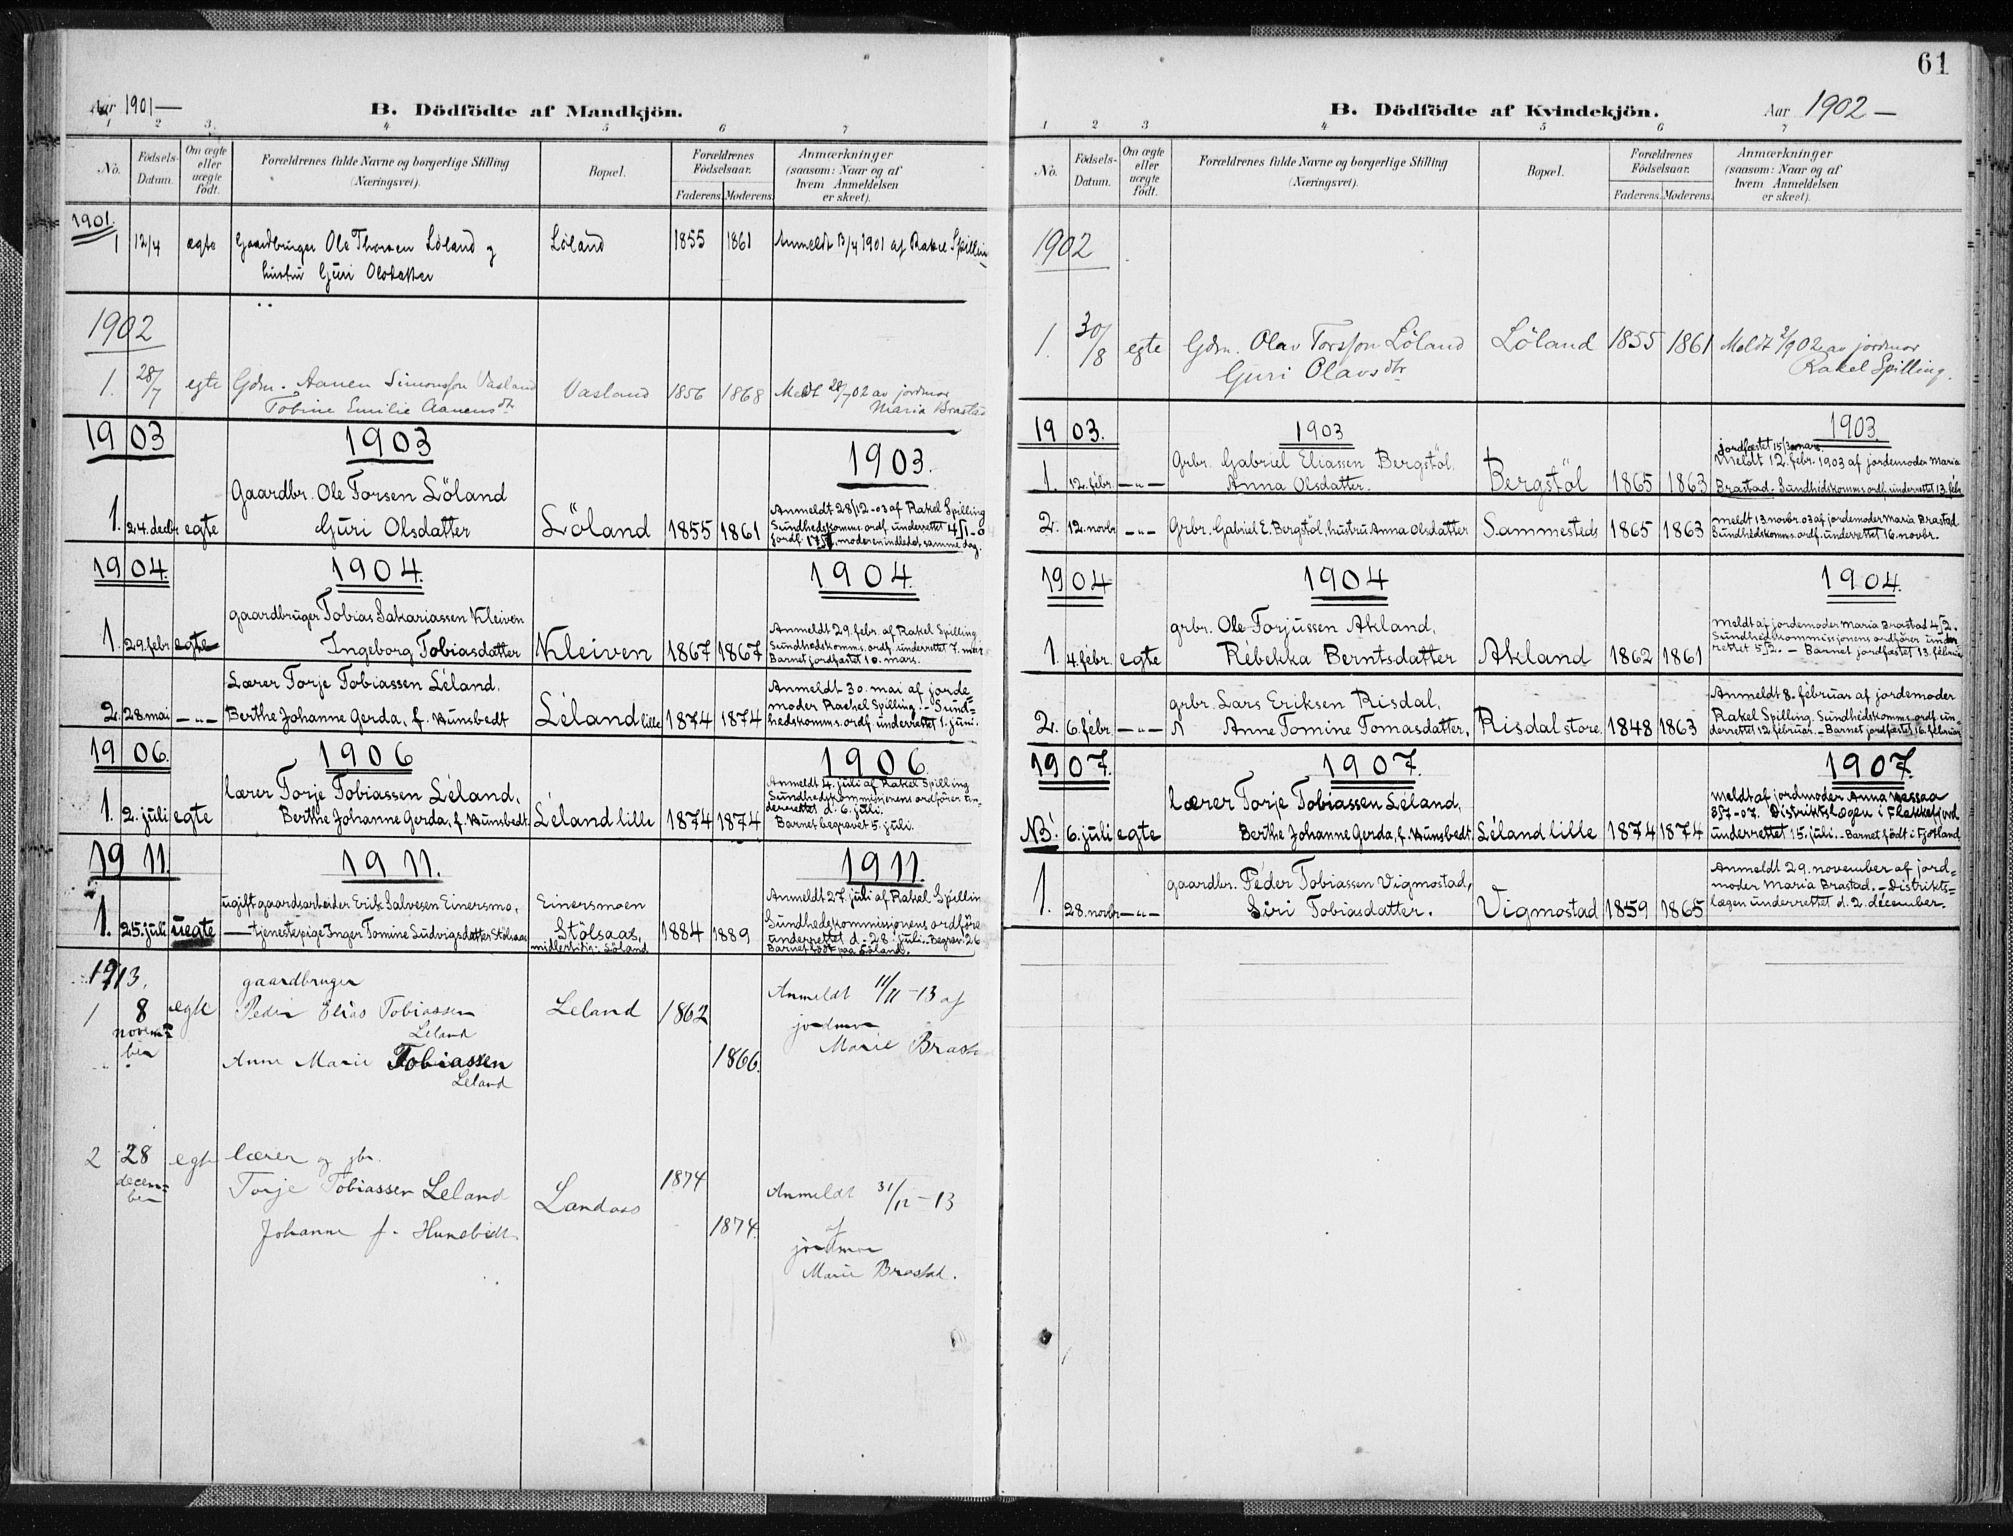 Aar 1901—
B. Dödfödte af Mandkjön.
1 2 3. 4 5 6 7
No. Födsels-Datum. Om ægte eller uægte födt. Forældrenes fulde Navne og borgerlige Stilling (Næringsvei). Bopæl. Forældrenes Födselsaar. Faderens. Moderens. Anmærkninger (saasom: Naar og af hvem Anmeldelsen er skeet).
1901.
1 12/4 ægte Gaardbruger Ole Thorsen Löland og Löland 1855 1861 Anmeldt 13/4 1901 af Rakel Spilling
hustru Guri Olsdatter
1902
1. 28/7 egte Gdm. Aanen Simonssøn Vasland Vasland 1856 1868 Meldt 28/7 02 av jordmor
Tobine Emilie Aanensdtr Maria Brastad
1903 1903 1903.
1. 24. decbr egte Gaardbr. Ole Torsen Löland
Guri Olsdatter Löland 1855 1861
Anmeldt 28/12-03 af Rakel Spilling
Sundhedskomms. ordf. underrettet 4/1-0
jordf. 17/1, moderen indledet samme dag.
1904. 1904. 1904.
1. 29. febr egte gaardbruger Tobias Sakariassen Kleiven
Ingeborg Tobiasdatter Kleiven 1867 1867
Anmeldt 29. febr. af Rakel Spilling.
Sundhedskomms. ordf. underrettet 7. mars
Barnet jordfæstet 10. mars.
2. 28. mai —„— Lærer Torje Tobiassen Léland,
Berthe Johanne Gerda, f. Hunsbedt Léland lille 1874 1874
Anmeldt 30. mai af jorde-
moder Rachel Spilling. - Sund-
hedskomms. ordf. underrettet 1. juni.
1906. 1906 1906.
1. 2. juli egte lærer Torje Tobiassen Léland,
Berthe Johanne Gerda, f. Hunsbedt Léland lille 1874 1874
Anmeldt 4. juli af Rakel Spilling
Sundhedskommisjonens ordförer un-
derrettet d. 6. juli.
Barnet begravet 5. juli.
1911. 1911. 1911.
1. 25. juli uegte ugift gaardsarbeider Erik Salvesen Einersmo,
— tjenestepige Inger Tomine Ludvigsdatter Stölsaas
Einersmoen
Stölsaas,
midlertidig: Löland 1884 1889
Anmeldt 27. juli af Rakel Spillin
Sundhedskommissionens ordföre
underrettet d. 28. juli. Begrav. 26
Barnet födt paa Löland.
1913.
1 8 novem-ber egte gaardbruger
Peder Elias Tobiassen
Leland Leland 1862
Anne Marie Tobiassen
Leland 1866.
Anmeldt 11/11-13 af
jordmor
Marie Brast
2 28 decem-ber egte lærer og gbr.
Torje Tobiassen Leland Landaas 1874
Johanne f. Hunsbedt. 1874.
Anmeldt 31/12-13
af
jordmor
Marie Brastad.
61
B. Dödfödte af Kvindekjön.
Aar 1902—
1 2 3 4 5 6 7
No. Födsels-Datum. Om ægte eller uægte födt. Forældrenes fulde Navne og borgerlige Stilling (Næringsvei). Bopæl. Forældrenes Födselsaar. Faderens. Moderens. Anmærkninger (saasom: Naar og af hvem Anmeldelsen er skeet).
1902
1. 30/8 egte Gdm. Olav Torssøn Löland Löland 1855 1861 Meldt 2/9 02 av jordmor
Guri Olavsdtr Rakel Spilling.
1903. 1903 1903.
1. 12. febr. —„— Grbr. Gabriel Eliassen Bergstöl,
Anna Olsdatter. Bergstöl 1865 1863
jordfæstet 15/3 mars
Meldt 12. febr. 1903 af jordemoder Maria
Brastad. Sundhedskomms. ordf. underrettet 13. febr.
2. 12. novbr —„— Grbr. Gabriel E. Bergstöl, hustru Anna Olsdatter Sammesteds 1865 1863
Meldt 13. novbr. 03 af jordemoder Maria Brastad.
Sundhedskomms. ordf. underrettet 16. novbr.
1904. 1904 1904.
1. 4. febr. egte grbr. Ole Torjussen Akland,
Rebekka Berntsdatter Akland 1862 1861
Meldt af jordemoder Maria Brastad 4/2.
Sundhedskommissjonens ordförer under
rettet 5/2. - Barnet jordfæstet 13. februar
2. 6. febr. —„— grbr. Lars Eriksen Risdal,
Anne Tomine Tomasdatter, Risdal store. 1848 1863
Anmeldt 8. februar af jordemoder
Rakel Spilling. Sundhedskomms. ordf. un-
derrettet 12. februar. - Barnet jordfæstet 16. februar
1907. 1907. 1907.
NB! 6. juli egte lærer Torje Tobiassen Léland,
Berthe Johanne Gerda, f. Hunsbedt Léland lille 1874 1874
Meldt af jordmoder Anna Nessaa
8/7-07. Distriktslægen i Flekkefjord
underrettet 15. juli. - Barnet födt i Fjotland
1. 28. novbr —„— gaardbr. Peder Tobiassen Vigmostad,
Siri Tobiasdatter. Vigmostad 1859 1865
Anmeldt 29. november af jord-
moder Maria Brastad. - Distrikts-
lægen underrettet d. 2. december.